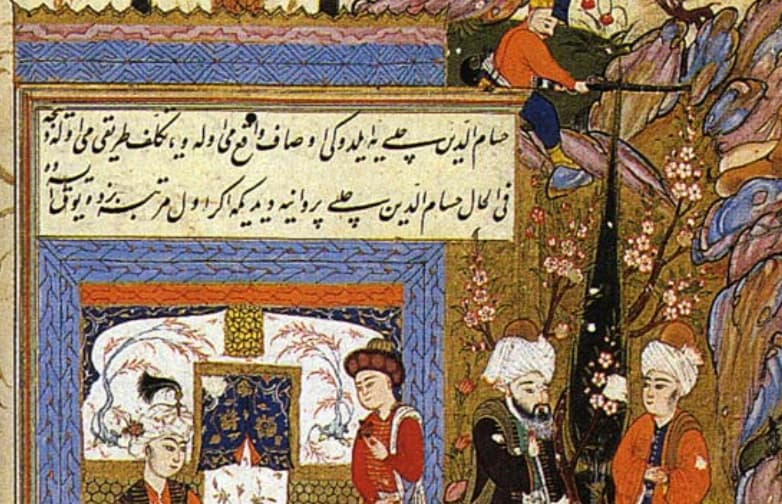 حسام الدین چلبی یه ایلدوکی اوصاف واقع می اوله ویا تکلف طریقی می اوله
فی الحال حسام الدین چلبی پروانیه دیدیکه اکر اول مرتبه بزده یوق